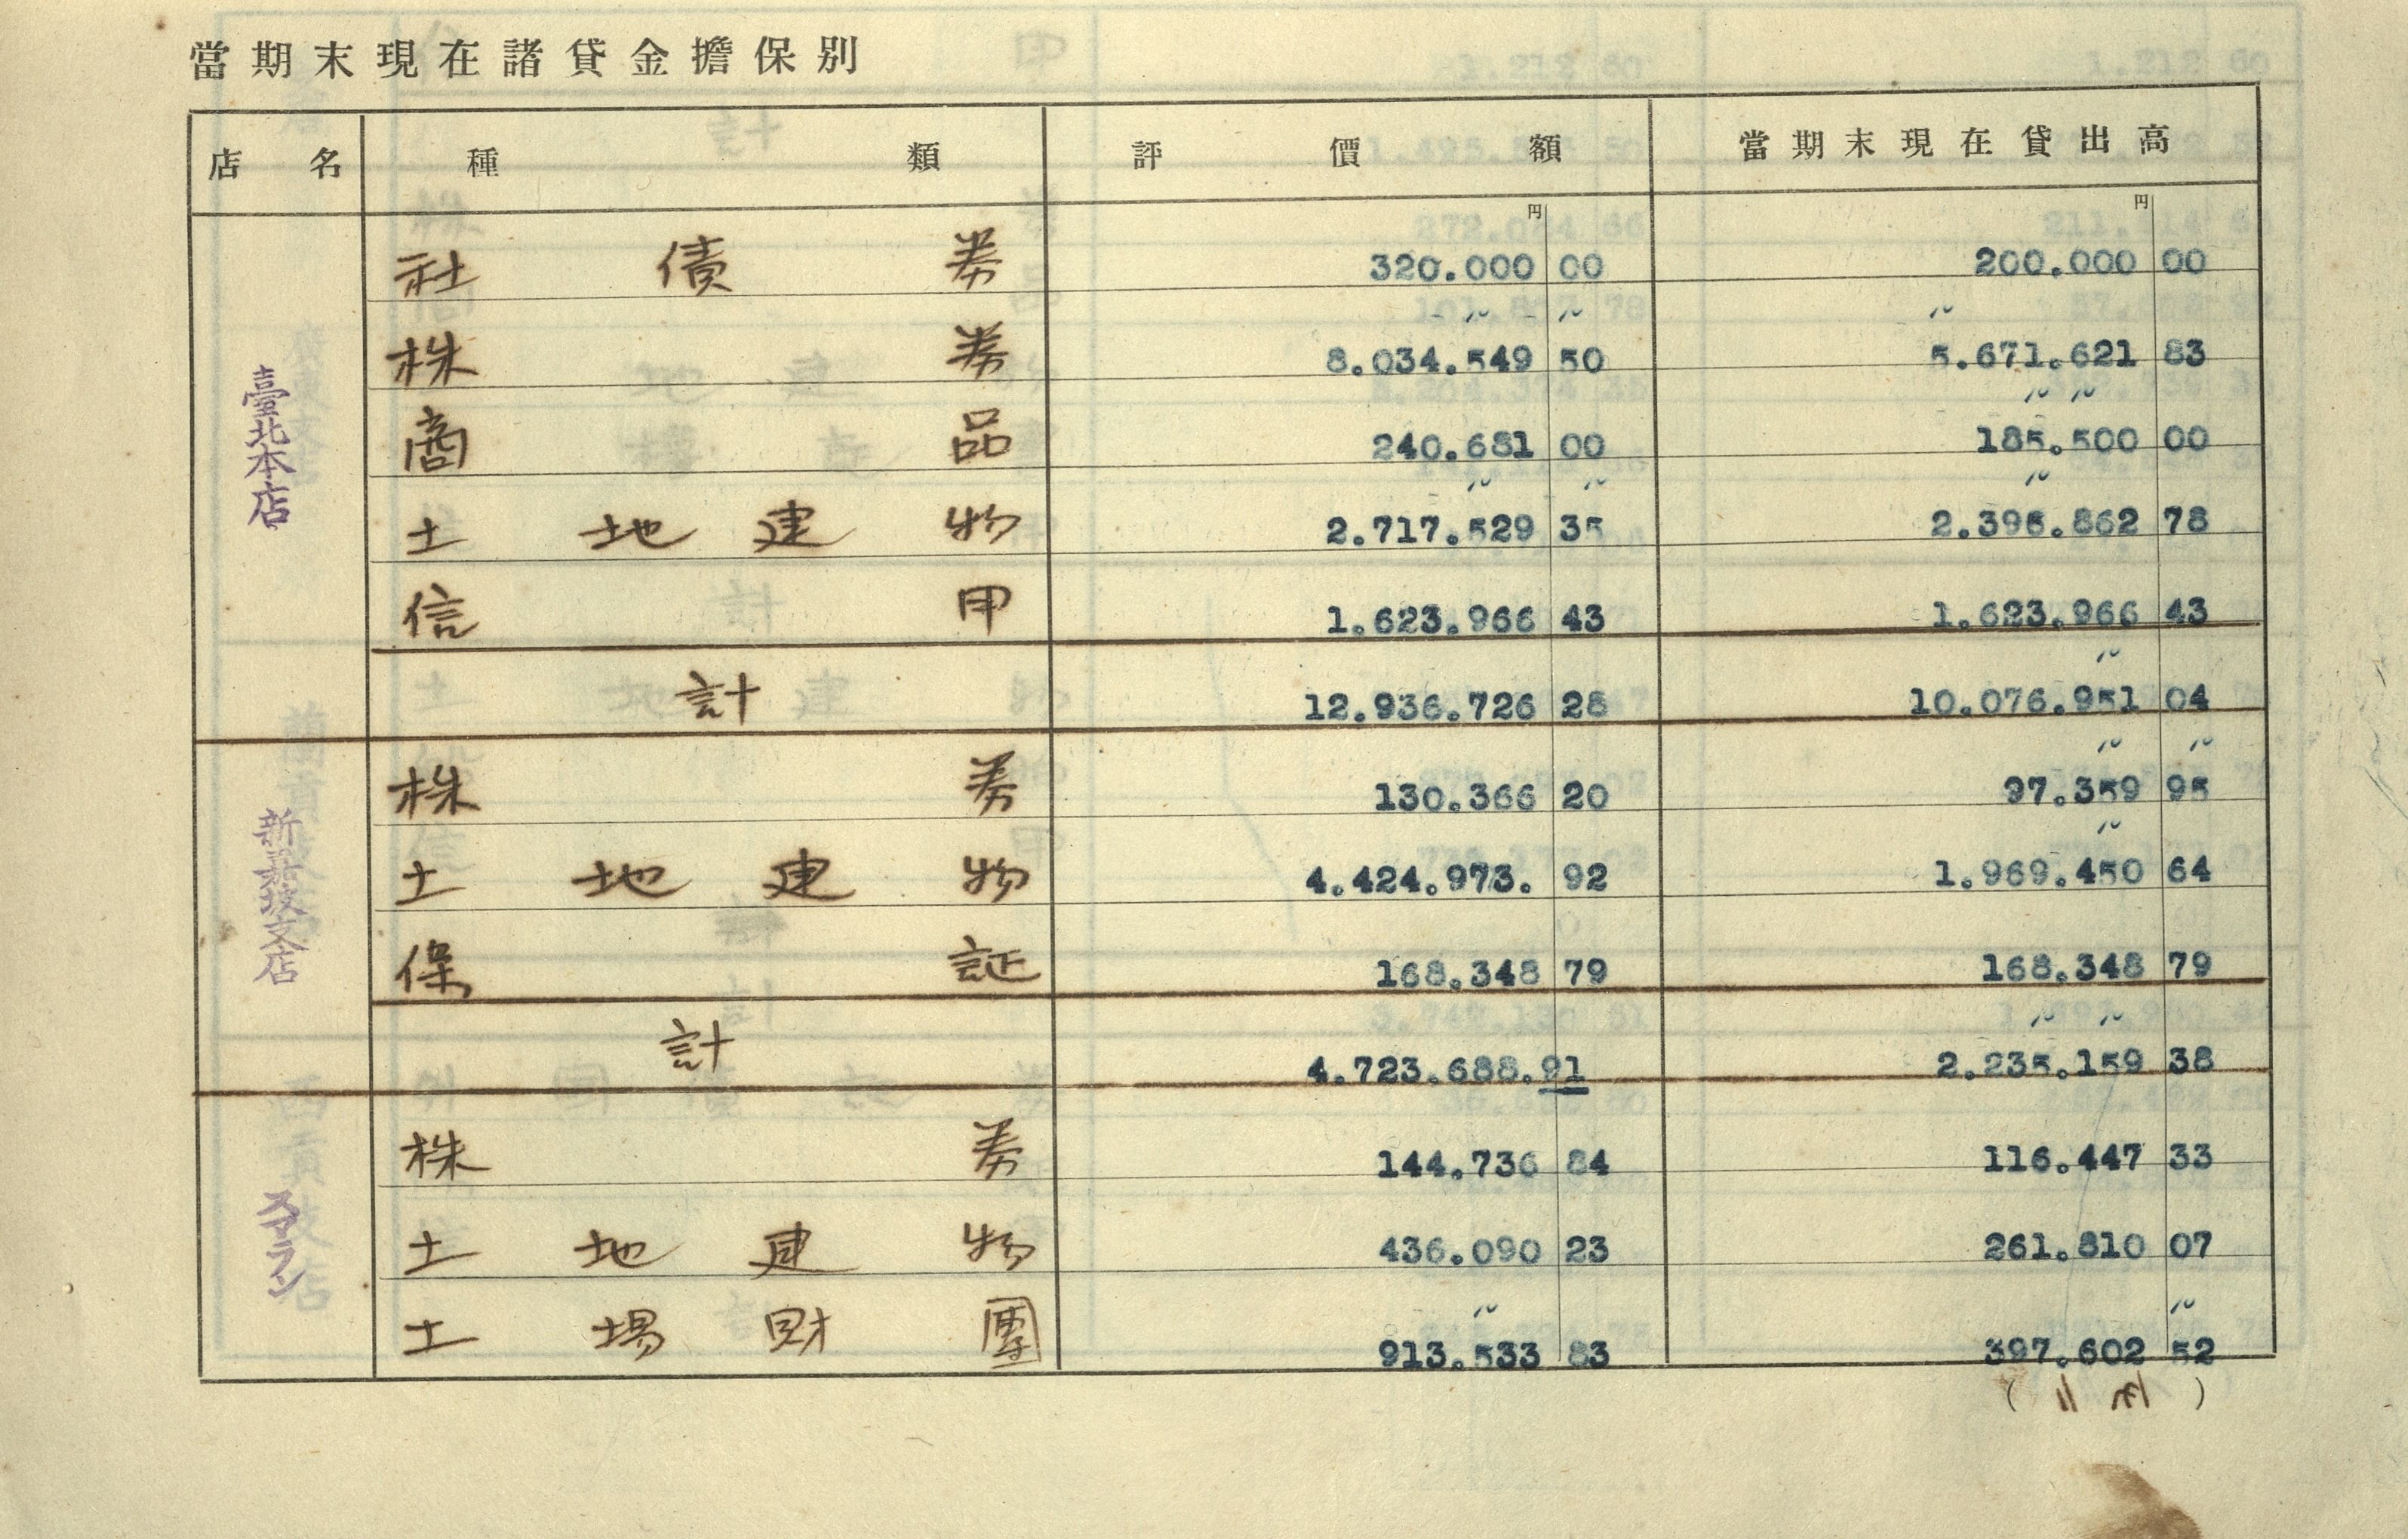 當期末現在諸貸金擔保別
店名 種類 評價額 當期末現在貸出高
円 円
臺北本店
社債券 320.000 00 200.000 00
〃 〃 〃
株券 8.034.549 50 5.671.621 83
〃 〃
商品 240.681 00 185.500 00
〃 〃 〃
土地建物 2.717.529 35 2.395.862 78
信用 1.623.966 43 1.623.966 43
〃
計 12.936.726 28 10.076.951 04
〃 〃
新嘉坡支店
株券 130.366 20 97.359 95
〃
土地建物 4.424.973. 92 1.969.450 64
保証 168.348 79 168.348 79
〃 〃
計 4.723.688.91 2.235.159 38
スマラン
株券 144.736 84 116.447 33
土地建物 436.090 23 261.810 07
〃 〃
土場財團 913.533 83 397.602 52